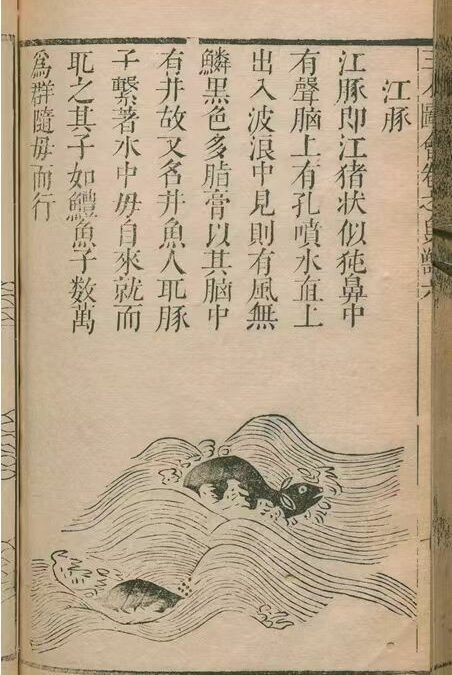 三才圖會卷之鳥獸六
江豚
江豚即江猪状似㹠鼻中
有聲腦上有孔噴水直上
出入波浪中見則有風無
鱗黑色多脂膏以其腦中
有井故又名井魚人取豚
子繫著水中母自來就而
取之其子如鱧魚子数萬
為群隨母而行